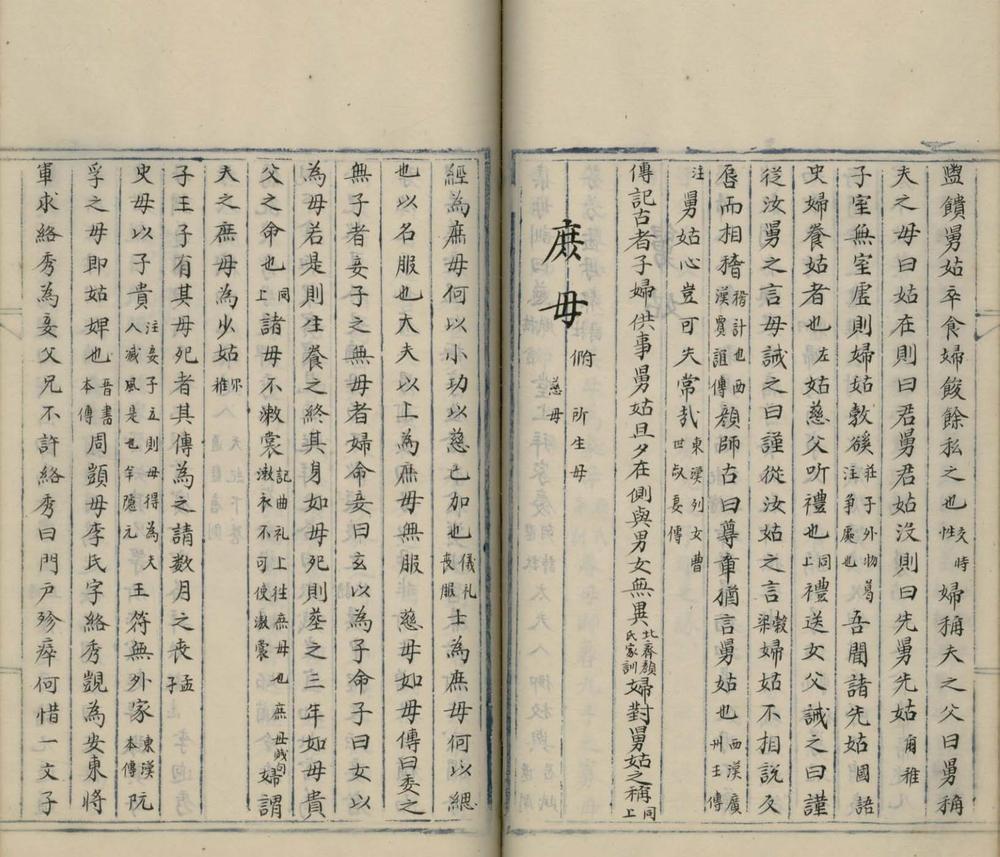 盥饋舅姑卒食婦餕餘私之也郊特性婦稱夫之父曰舅稱
夫之母曰姑在則曰君舅君姑沒則曰先舅先姑爾雅
子室無空虛則婦姑勃豀莊子外物注爭處也吾聞諸先姑國語
史婦養姑者也左姑慈父听禮也同上禮送女父誡之曰謹
從汝舅之言母誡之曰謹從汝姑之言穀梁婦姑不相説反
唇而相稽稽計也西漢賈誼傳顏師古曰尊章猶言舅姑也西漢廣州王傳
注舅姑心豈可失常哉東漢列女曹世叔妻傳
傳記古者子婦供事舅姑旦夕在側與男女無異北齊顏氏家訓婦對舅姑之稱同上
庶母 所生母 慈母
經為庶母何以小功以慈已加也儀礼喪服士為庶母何以緦
也以名服也大夫以上為庶母無服 慈母如母傳曰妾之
無子者妾子之無母者婦命妾曰玄以為子命子曰女以
為母若是則生養之終其身如母死則塟之三年如母貴
父之命也同上諸母不漱裳記曲礼上注庶母也庶母賤可使漱裳漱衣不婦謂
夫之庶母為少姑尔雅
子王子有其母死者其傅為之請數月之丧孟子
史母以子貴注妾子立則母得為夫人成風是也王符無外家東漢本傳阮
孚之母即姑婢也晋書本傳周顗母李氏字絡秀顗為安東將
軍求絡秀為妾父兄不許絡秀曰門戶殄瘁何惜一文子